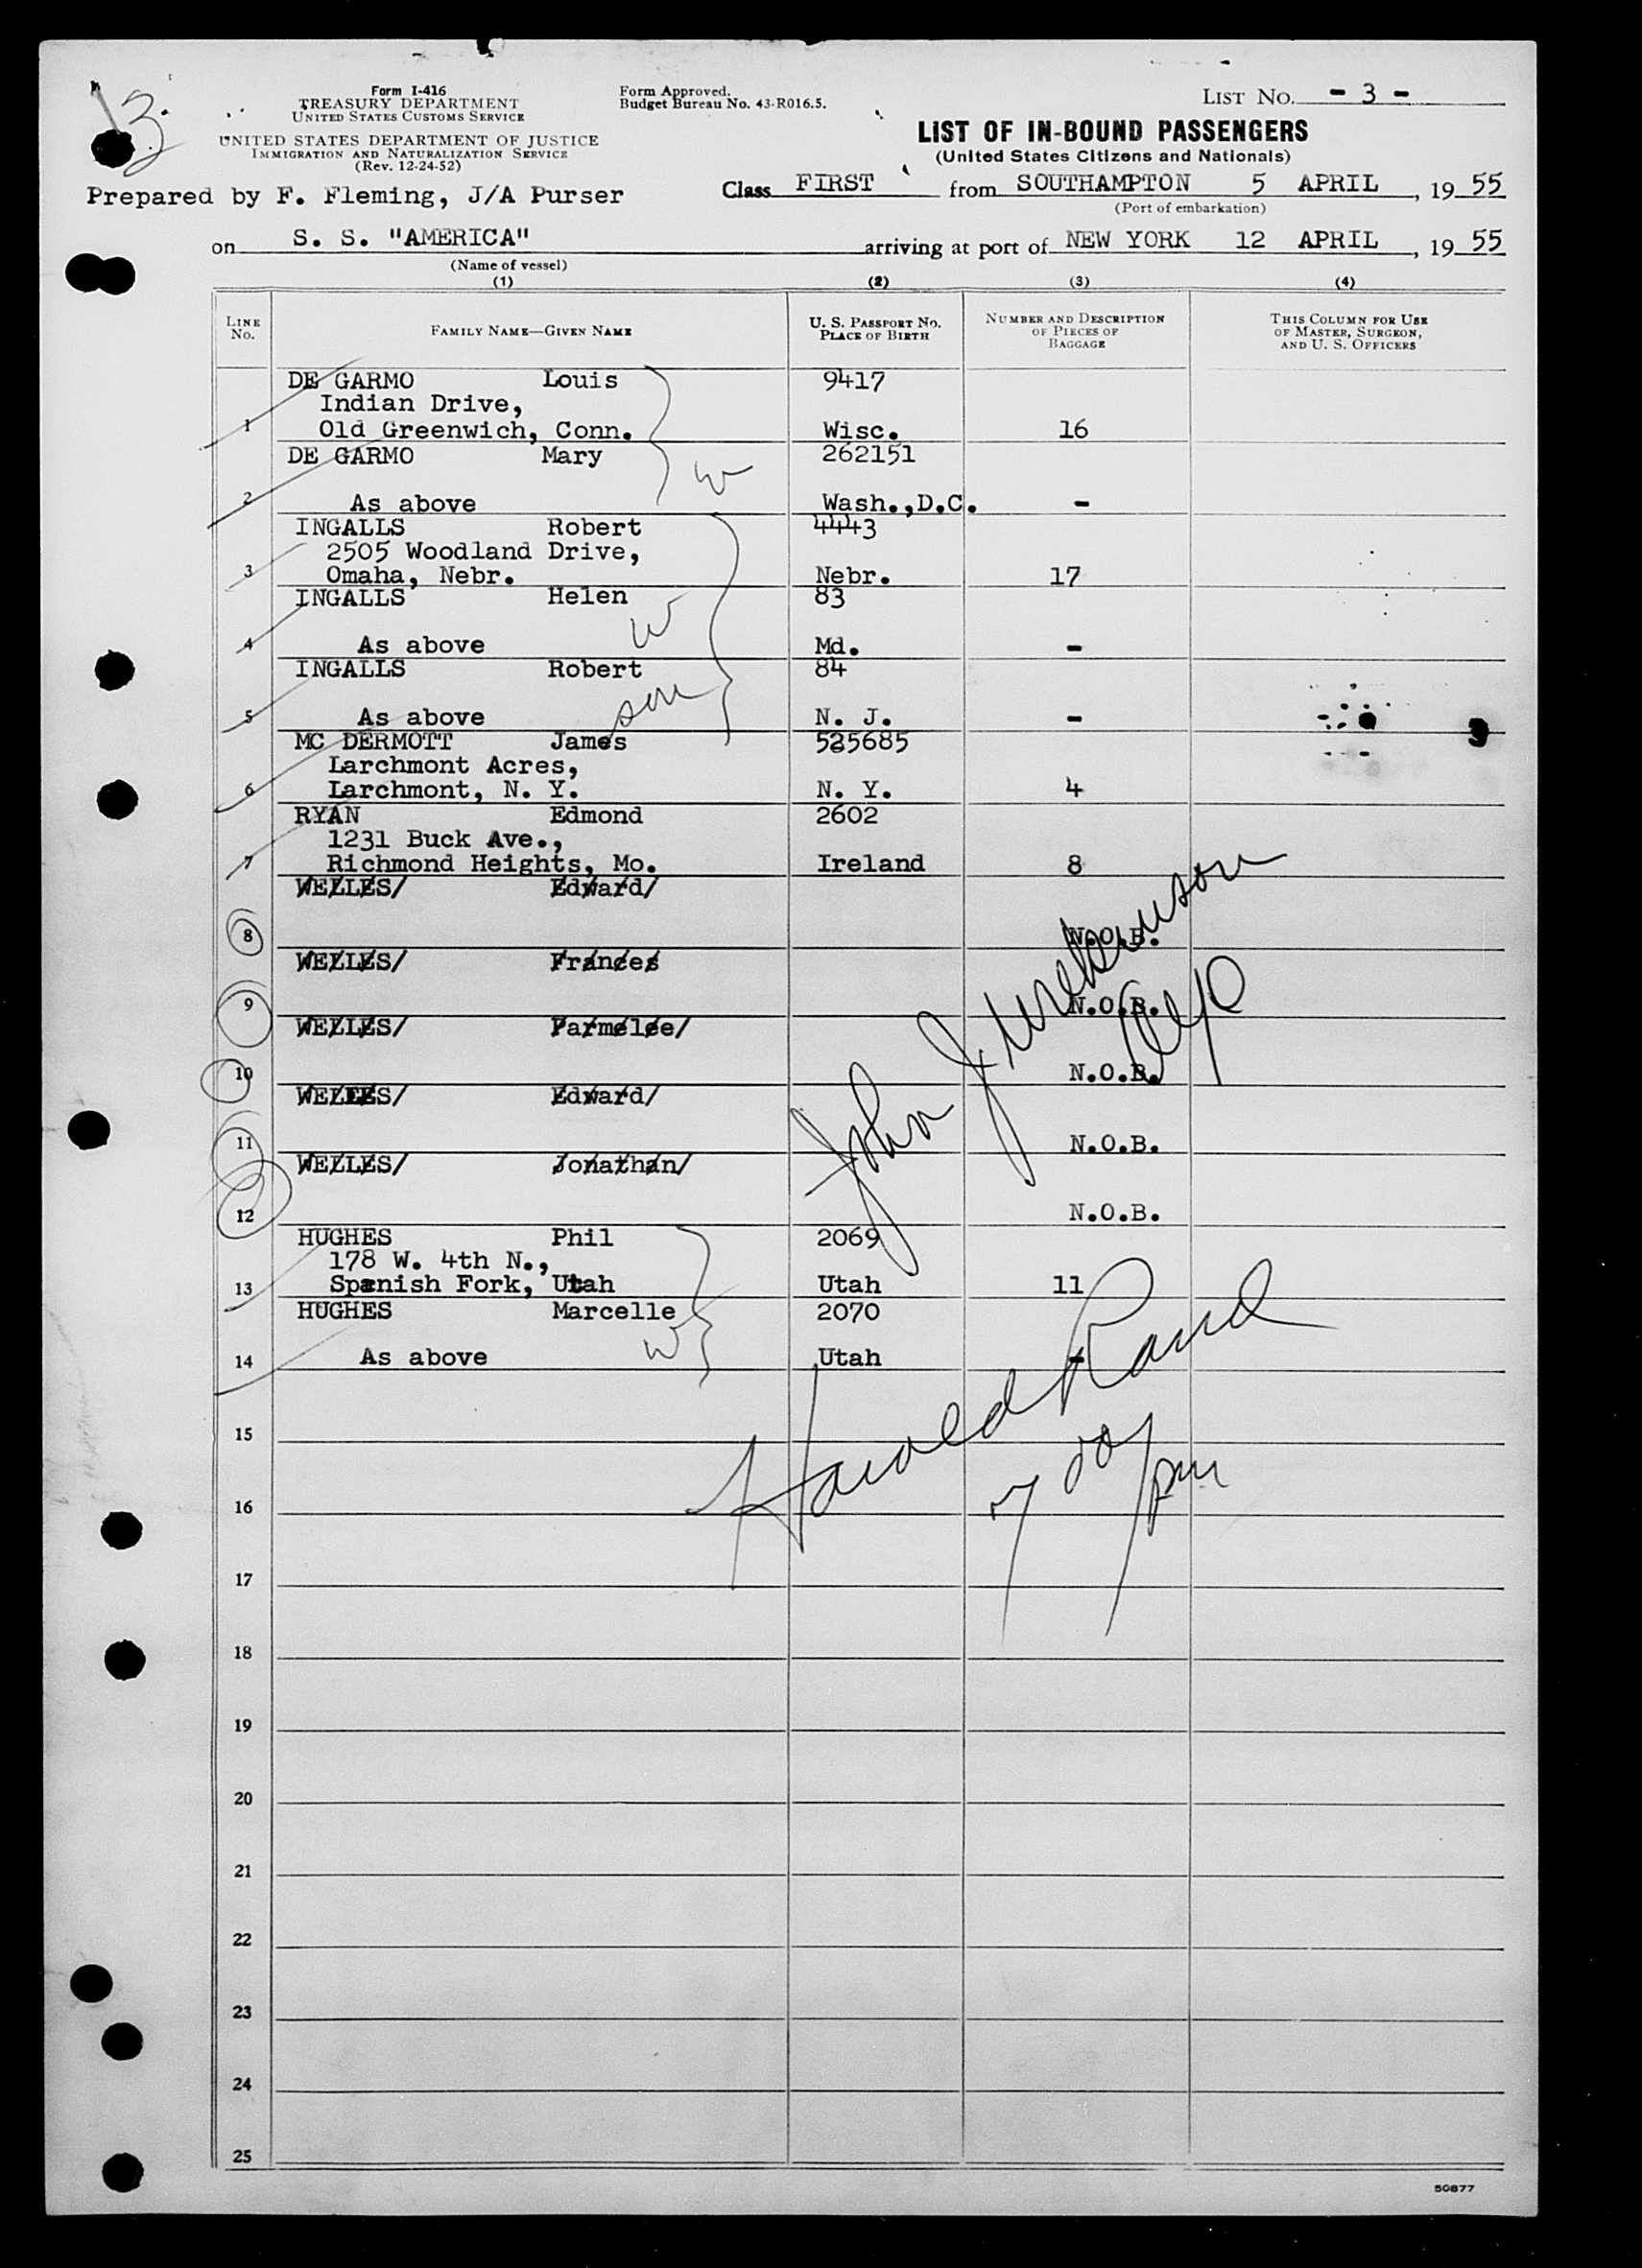 3
Form I-416
TREASURY DEPARTMENT
UNITED STATES CUSTOMS SERVICE
UNITED STATES DEPARTMENT OF JUSTICE
IMMIGRATION AND NATURALIZATION SERVICE
(Rev. 12-24-52)
Form Approved.
Budget Bureau No. 43-R016.5.
LIST NO. - 3 -
LIST OF IN-BOUND PASSENGERS
(United States Citizens and Nationals)
Prepared by F. Fleming, J/A Purser
Class FIRST from SOUTHAMPTON 5 APRIL, 19 55
(Port of embarkation)
on S. S. "AMERICA" arriving at port of NEW YORK 12 APRIL, 19 55
(Name of vessel)
(1) (2) (3) (4)
LINE No.
FAMILY NAME—GIVEN NAME
U. S. PASSPORT NO.
PLACE OF BIRTH
NUMBER AND DESCRIPTION
OF PIECES OF
BAGGAGE
THIS COLUMN FOR USE
OF MASTER, SURGEON,
AND U. S. OFFICERS
DE GARMO Louis 9417
Indian Drive,
1 Old Greenwich, Conn. Wisc. 16
DE GARMO Mary 262151
W
2 As above Wash.,D.C. -
INGALLS Robert 4443
2505 Woodland Drive,
3 Omaha, Nebr. Nebr. 17
INGALLS Helen 83
W
4 As above Md. -
INGALLS Robert 84
son
5 As above N. J. -
MC DERMOTT James 525685
Larchmont Acres,
6 Larchmont, N. Y. N. Y. 4
RYAN Edmond 2602
1231 Buck Ave.,
7 Richmond Heights, Mo. Ireland 8
WELLES/ Edward/
8 N.O.B.
WELLES/ Frances
9 N.O.B.
WELLES/ Parmelee/
10 N.O.B.
WELLES/ Edward/
11 N.O.B.
WELLES/ Jonathan/
12 N.O.B.
John J
HUGHES Phil 2069
178 W. 4th N.,
13 Spanish Fork, Utah Utah 11
HUGHES Marcelle 2070
W
14 As above Utah -
Harold Rand
7 00 pm
15
16
17
18
19
20
21
22
23
24
25
50877